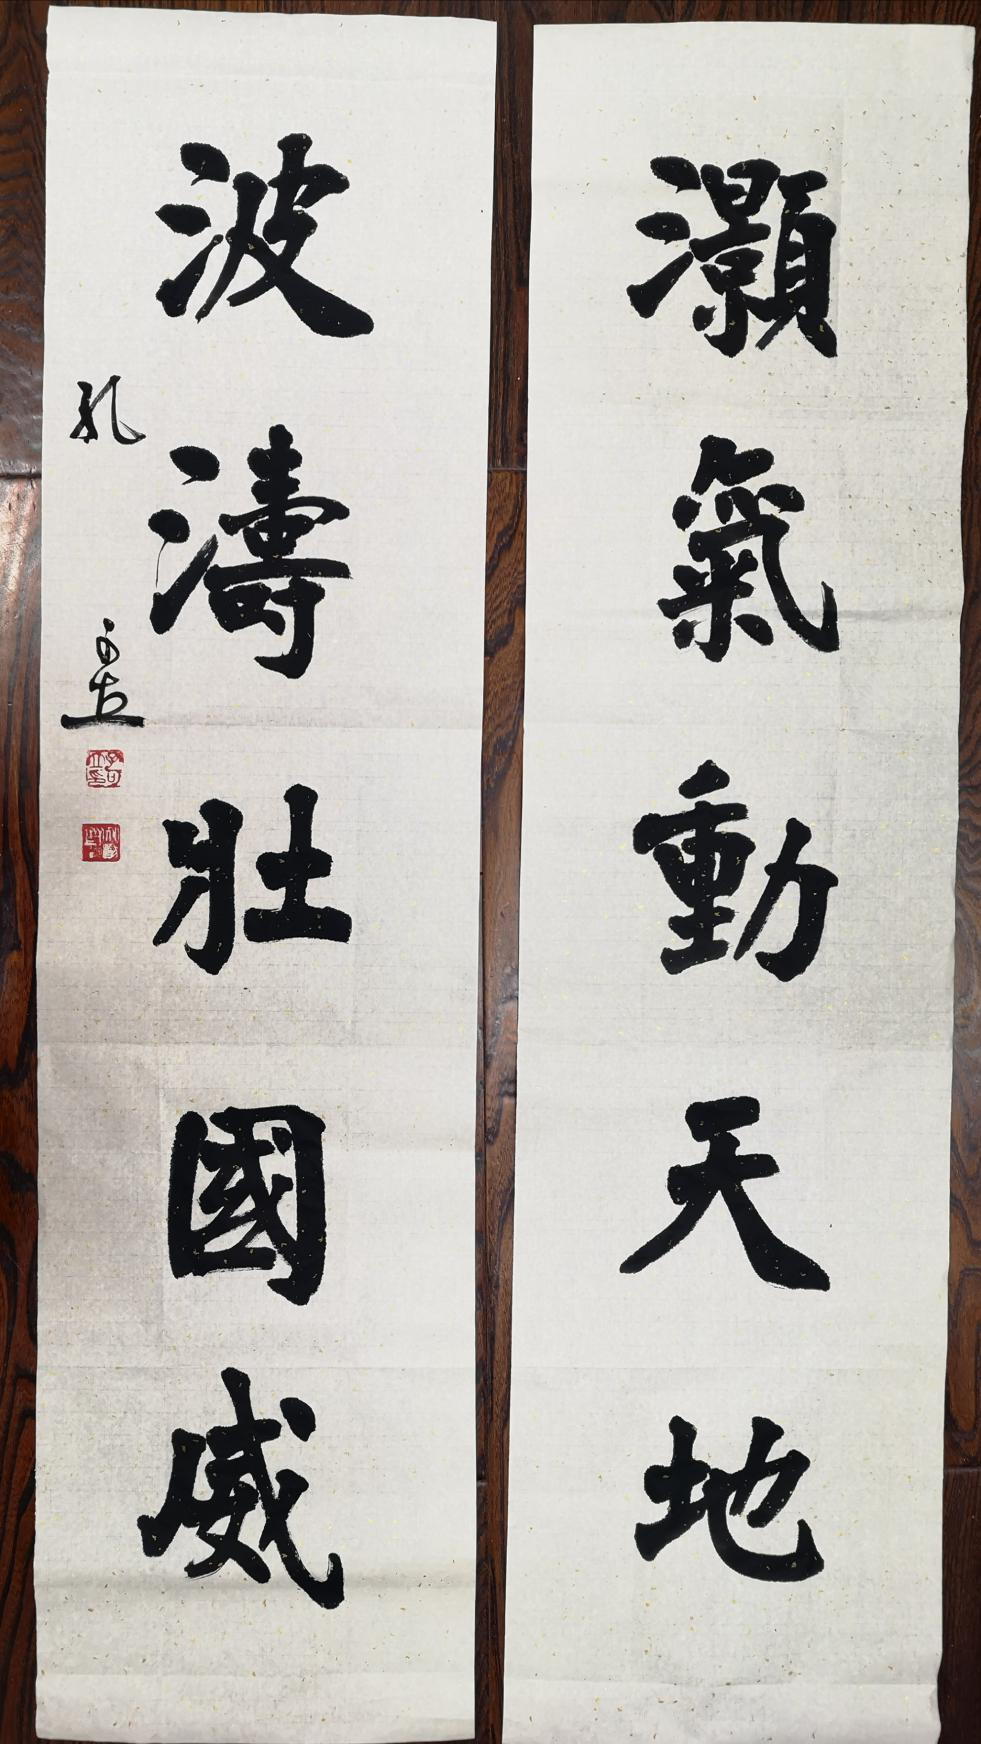 灝氣動天地
波濤壯國威
孔可立